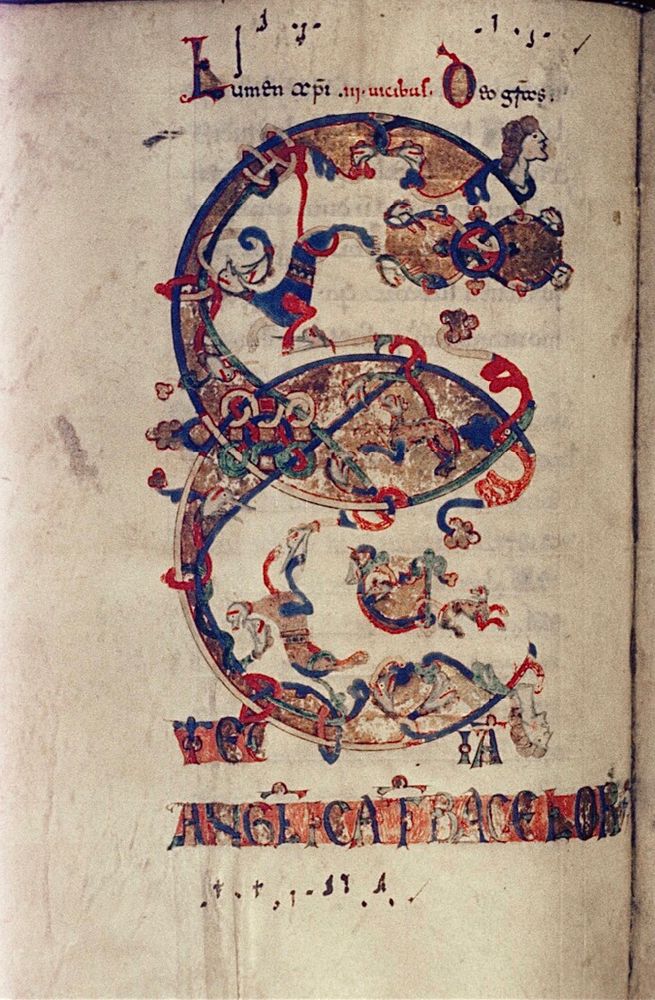 Lumen xp̄i .iii. uicibus. Deo gr̄as.
E
TET IĀ
ANGELICA T̄BACELOR